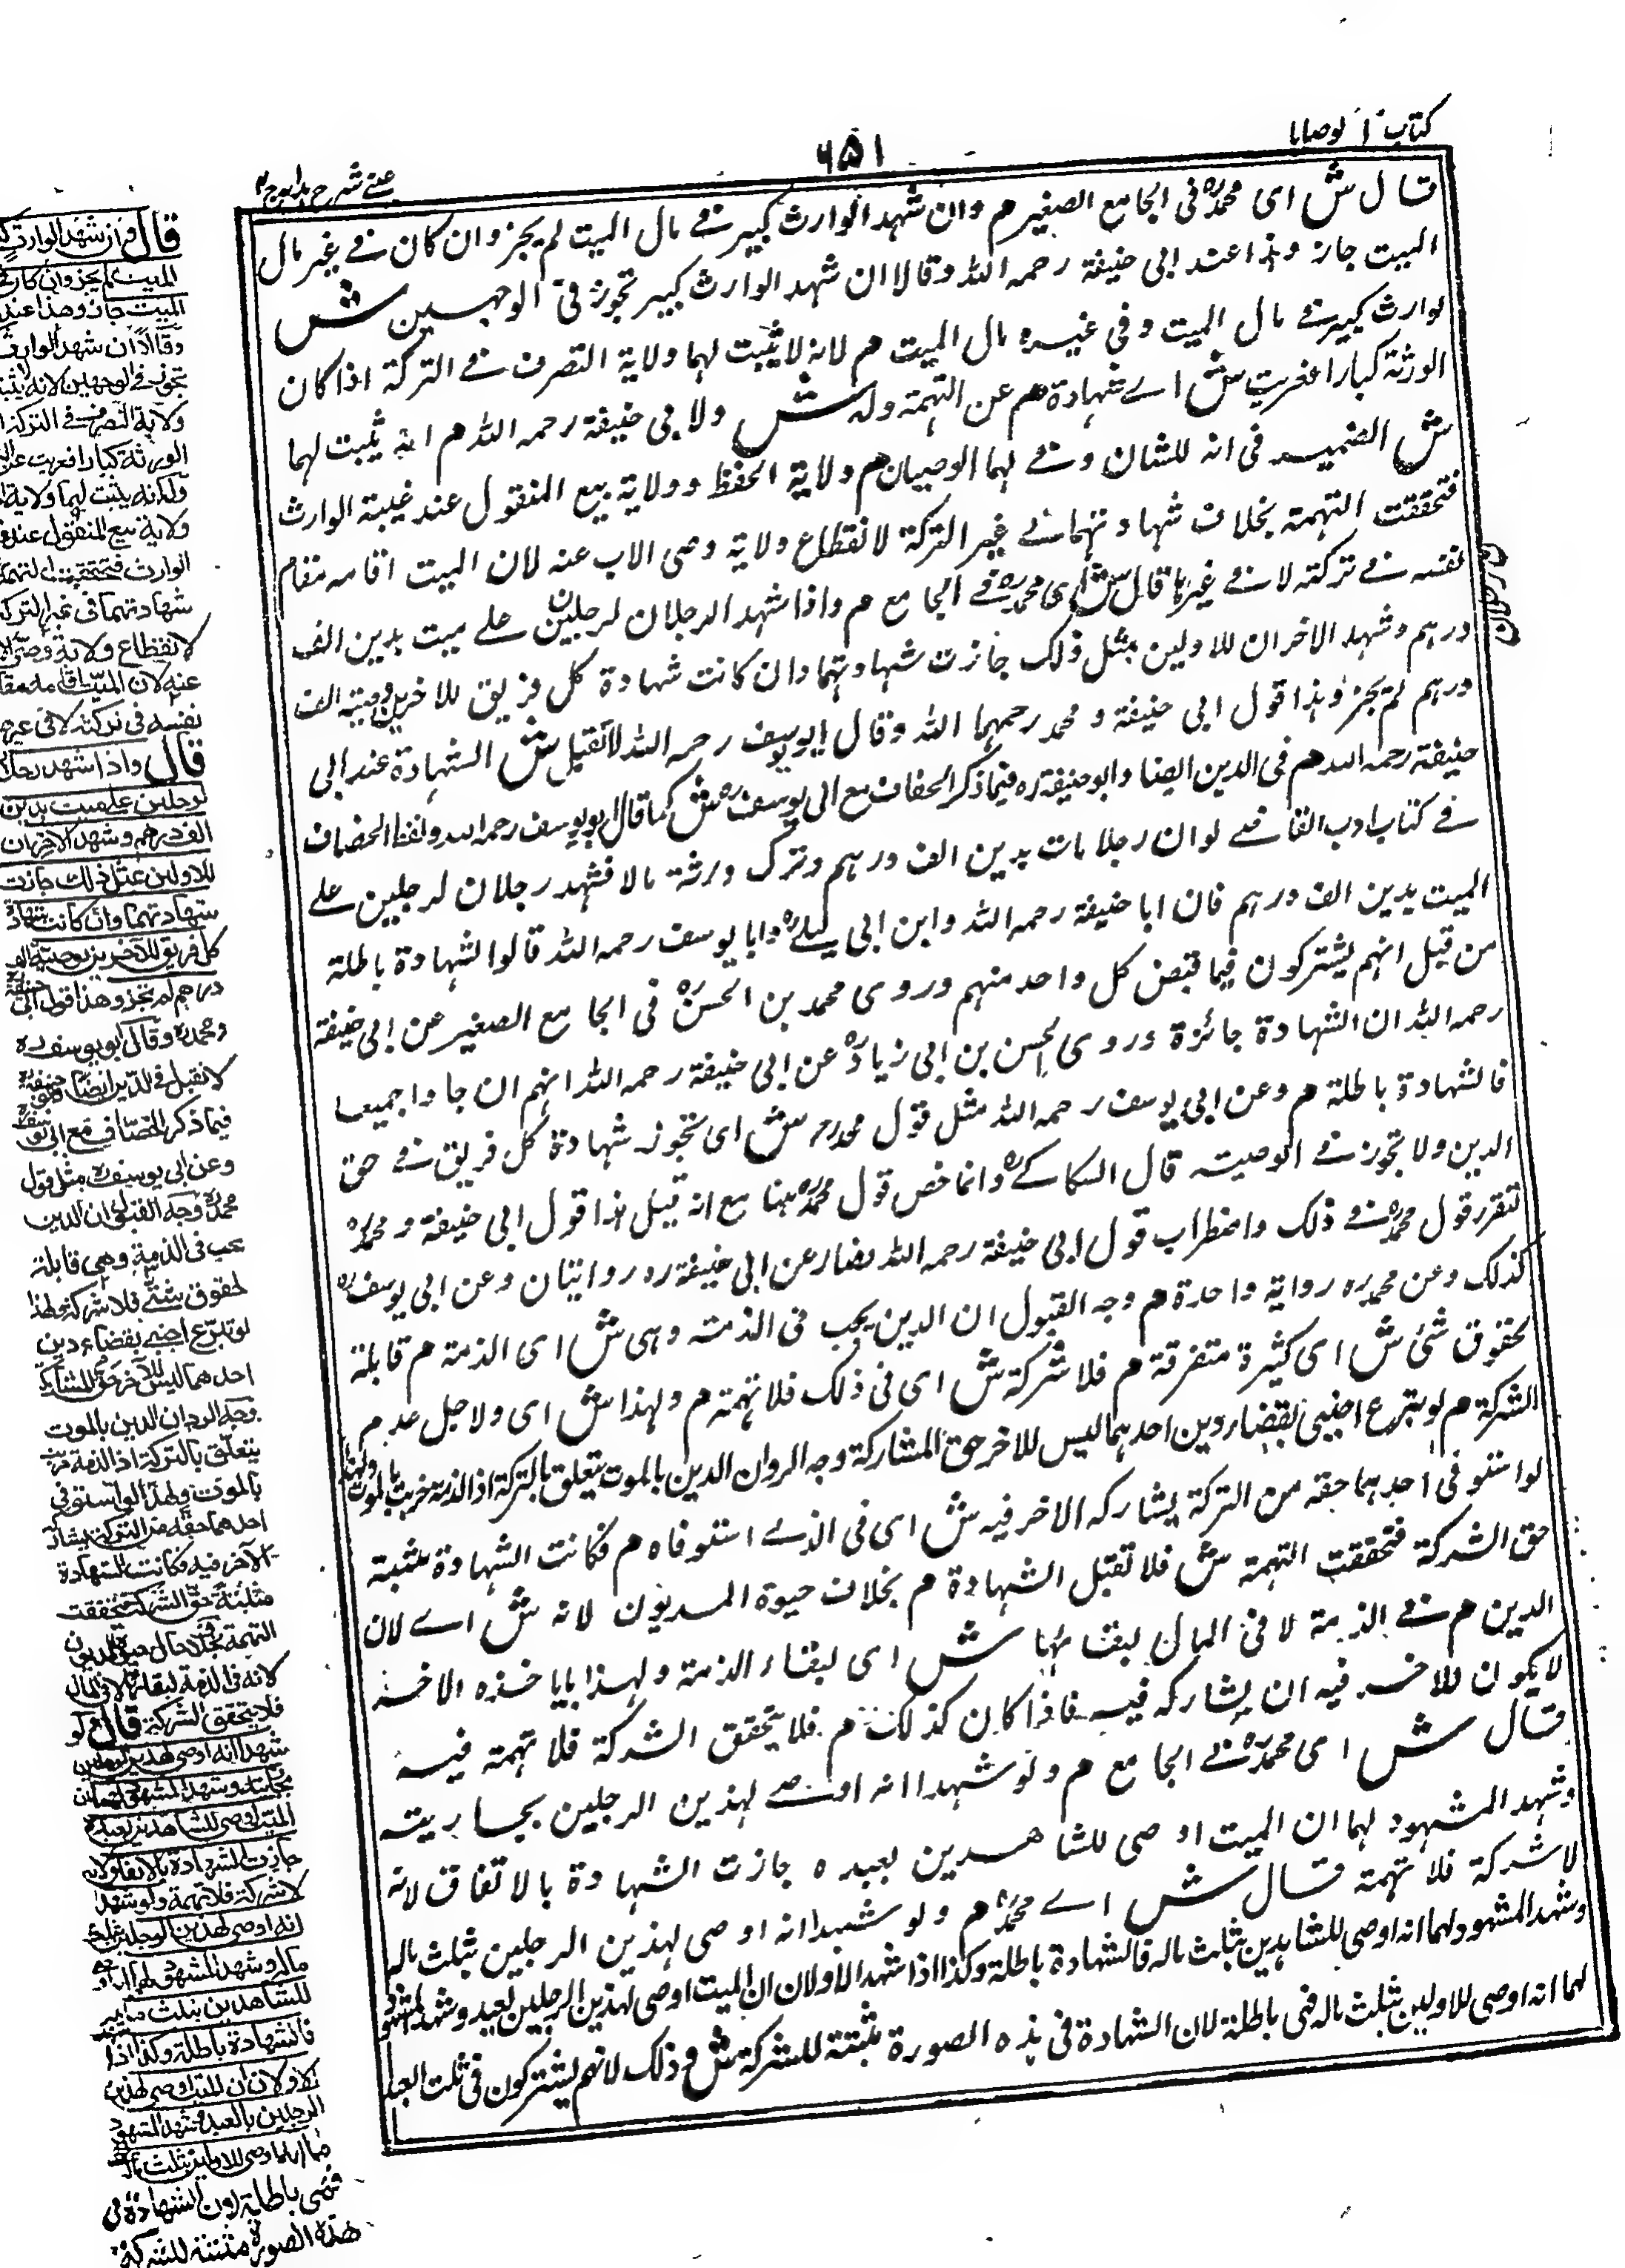 كتاب الوصايا
٦٥١
عيني شرح هدايه ج ٤
قال ش اى محمدؒ فى الجامع الصغير م وان شهد الوارث كبير فے مال الميت لم يجز وان كان فے غير مال
الميت جاز وهذا عند ابى حنيفة رحمه الله وقالا ان شهد الوارث كبير تجوز فى الوجهين ش
لوارث كبير فے مال الميت وفى غيره مال الميت م لانه لا يثبت لهما ولاية التصرف فے التركة اذا كان
الورثة كبارا فعريت ش اے شهادة هم عن التهمة وله ش ولابى حنيفة رحمه الله م انه يثبت لهما
ش الضمير فى انه للشان وفے لهما الوصيان م ولاية الحفظ وولاية بيع المنقول عند غيبة الوارث
فتحققت التهمة بخلاف شهادتهما فے غير التركة لانقطاع ولاية وصى الاب عنه لان الميت اقامه مقام
نفسه فے تركته لا فے غيرها قال ش اى محمدؒ فے الجامع م واذا شهد الرجلان لرجلين علے ميت بدين الف
درهم وشهد الاخران للاولين بمثل ذلك جازت شهادتهما وان كانت شهادة كل فريق للاخرين بوصية الف
درهم لم يجز وهذا قول ابى حنيفة و محمد رحمهما الله وقال ابو يوسف رحمه الله لا تقبل ش الشهادة عند ابى
حنيفة رحمه الله م فى الدين ايضا وابو حنيفة ره فيما ذكر الخصاف مع ابى يوسف ره ش كما قال ابو يوسف رحمه الله ولفظ الخصاف
فے كتاب ادب القاضے لو ان رجلا مات بدين الف درهم وترك ورثة مالا فشهد رجلان لرجلين علے
الميت بدين الف درهم فان ابا حنيفة رحمه الله وابن ابى ليلےؒ وابا يوسف رحمه الله قالوا الشهادة باطلة
من قبل انهم يشتركون فيما قبض كل واحد منهم وروى محمد بن الحسنؒ فى الجامع الصغير عن ابى حنيفة
رحمه الله ان الشهادة جائزة وروى الحسن بن ابى زيادؒ عن ابى حنيفة رحمه الله انهم ان جاوا جميعا
فالشهادة باطلة م وعن ابى يوسف رحمه الله مثل قول محمدرح ش اى تجوز شهادة كل فريق فے حق
الدين ولا تجوز فے الوصية قال السكاكےؒ وانما خص قول محمدؒ هنا مع انه قيل هذا قول ابى حنيفة و محمدؒ
لتقرر قول محمدؒ فے ذلك واضطراب قول ابى حنيفة رحمه الله فصار عن ابى حنيفة ره روايتان وعن ابى يوسف ره
كذلك وعن محمد ره رواية واحدة م وجه القبول ان الدين يجب فى الذمة وهى ش اى الذمة م قابلة
لحقوق شتى ش اى كثيرة متفرقة م فلا شركة ش اى فى ذلك فلا تهمة م ولهذا ش اى ولاجل عدم
الشركة م لو تبرع اجنبى بقضاء دين احدهما ليس للاخر حق المشاركة وجه الرد ان الدين بالموت يتعلق بالتركة اذ الذمة خربت بالموت ولهذا
لو استوفى احدهما حقه من التركة يشاركه الاخر فيه ش اى فى الذے استوفاه م فكانت الشهادة مثبتة
حق الشركة فتحققت التهمة ش فلا تقبل الشهادة م بخلاف حيوة المديون لانه ش اے لان
الدين م فے الذمة لا فى المال لبقائها ش اى لبقاء الذمة ولهذا باياخذه الاخذ
لا يكون للاخر فيه ان يشاركه فيه فاذا كان كذلك م فلا يتحقق الشركة فلا تهمة فيه
قال ش اى محمدؒ فے الجامع م ولو شهدا انه اوصے لهذين الرجلين بجاريته
وشهد المشهود لهما ان الميت اوصى للشاهدين بعبده جازت الشهادة بالاتفاق لانه
لا شركة فلا تهمة قال ش اے محمدؒ م ولو شهدا انه اوصى لهذين الرجلين بثلث ماله
وشهد المشهود لهما انه اوصى للشاهدين بثلث ماله فالشهادة باطلة وكذا اذا شهد الاولان ان الميت اوصى لهذين الرجلين بعبد وشهد المشهود
لهما انه اوصى للاولين بثلث ماله فهى باطلة لان الشهادة فى هذه الصورة مثبتة للشركة ش وذلك لانهم يشتركون فى ثلث العبد
قال وان شهد الوارث
الميت لم يجز وان كان فى
الميت جاز وهذا عند
وقالا ان شهد الوارث
تجوز فى الوجهين لانه لا يثبت
ولاية التصرف فى التركة
الورثة كبارا فعريت عن
وله انه يثبت لهما ولاية
ولاية بيع المنقول عند
الوارث فتحققت التهمة
شهادتهما فى غير التركة
لانقطاع ولاية وصى
عنه لان الميت اقامه مقام
نفسه فى تركته لا فى غيرها
قال واذا شهد رجلان
لرجلين على ميت بدين
الف درهم وشهد الاخران
للاولين بمثل ذلك جازت
شهادتهما وان كانت شهادة
كل فريق للاخرين بوصية الف
درهم لم تجز وهذا قول ابى حنيفة
ومحمد ره وقال ابو يوسف ره
لا تقبل فى الدين ايضا وابو حنيفة
فيما ذكر الخصاف مع ابى يوسف
وعن ابى يوسف ره مثل قول
محمد ره وجه القبول ان الدين
يجب فى الذمة وهى قابلة
لحقوق شتى فلا شركة ولهذا
لو تبرع اجنبى بقضاء دين
احدهما ليس للاخر حق المشاركة
وجه الرد ان الدين بالموت
يتعلق بالتركة اذ الذمة خربت
بالموت ولهذا لو استوفى
احدهما حقه من التركة يشاركه
الآخر فيه فكانت الشهادة
مثبتة حق الشركة فتحققت
التهمة بخلاف حال حيوة المديون
لانه فى الذمة لبقائها لا فى المال
فلا يتحقق الشركة قال ولو
شهدا انه اوصى لهذين الرجلين
بجاريته وشهد المشهود لهما ان
الميت اوصى للشاهدين بعبده
جازت الشهادة بالاتفاق لانه
لا شركة فلا تهمة ولو شهدا
انه اوصى لهذين الرجلين بثلث
ماله وشهد المشهود لهما انه
للشاهدين بثلث ماله
فالشهادة باطلة وكذا اذا شهد
الاولان ان الميت اوصى لهذين
الرجلين بالعبد وشهد المشهود
لهما انه اوصى للاولين بثلث ماله
فهى باطلة لان الشهادة فى
هذه الصورة مثبتة للشركة